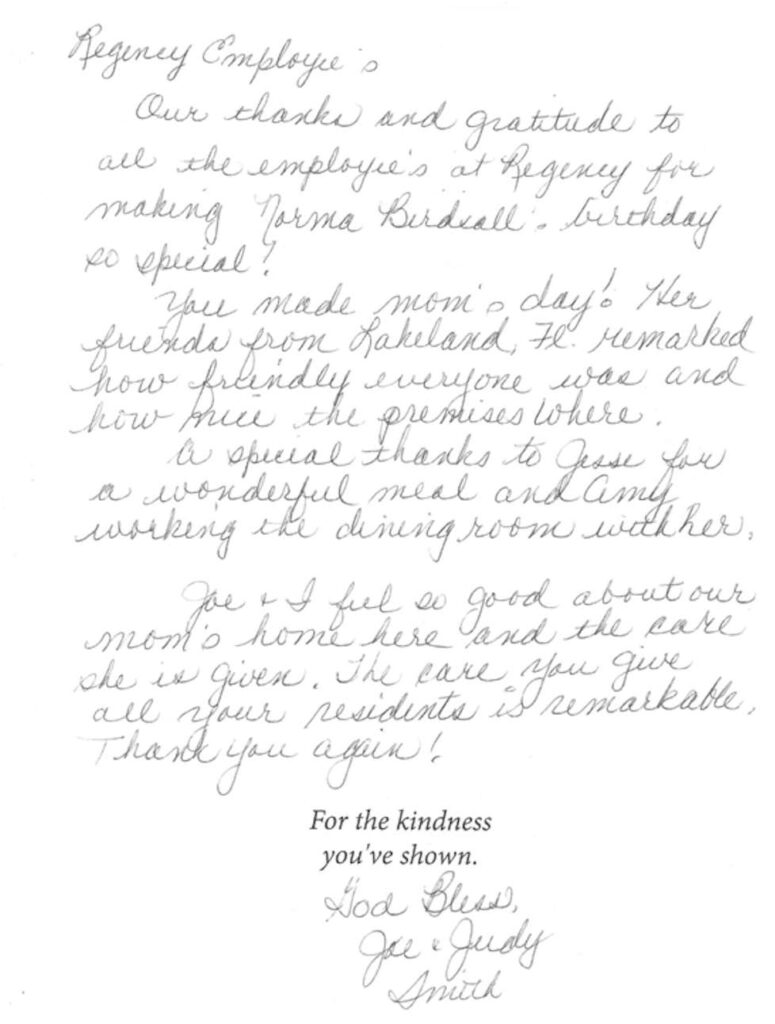 Regency Employie's
Our thanks and gratitude to
all the employie's at Regency for
making Norma Birdsall's birthday
so special!
You made mom's day! Her
friends from Lakeland, Fl. remarked
how friendly everyone was and
how nice the premises where.
A special thanks to Jesse for
a wonderful meal and Amy
working the dining room with her.
Joe & I feel so good about our
mom's home here and the care
she is given. The care you give
all your residents is remarkable.
Thank you again!
For the kindness
you've shown.
God Bless,
Joe & Judy
Smith